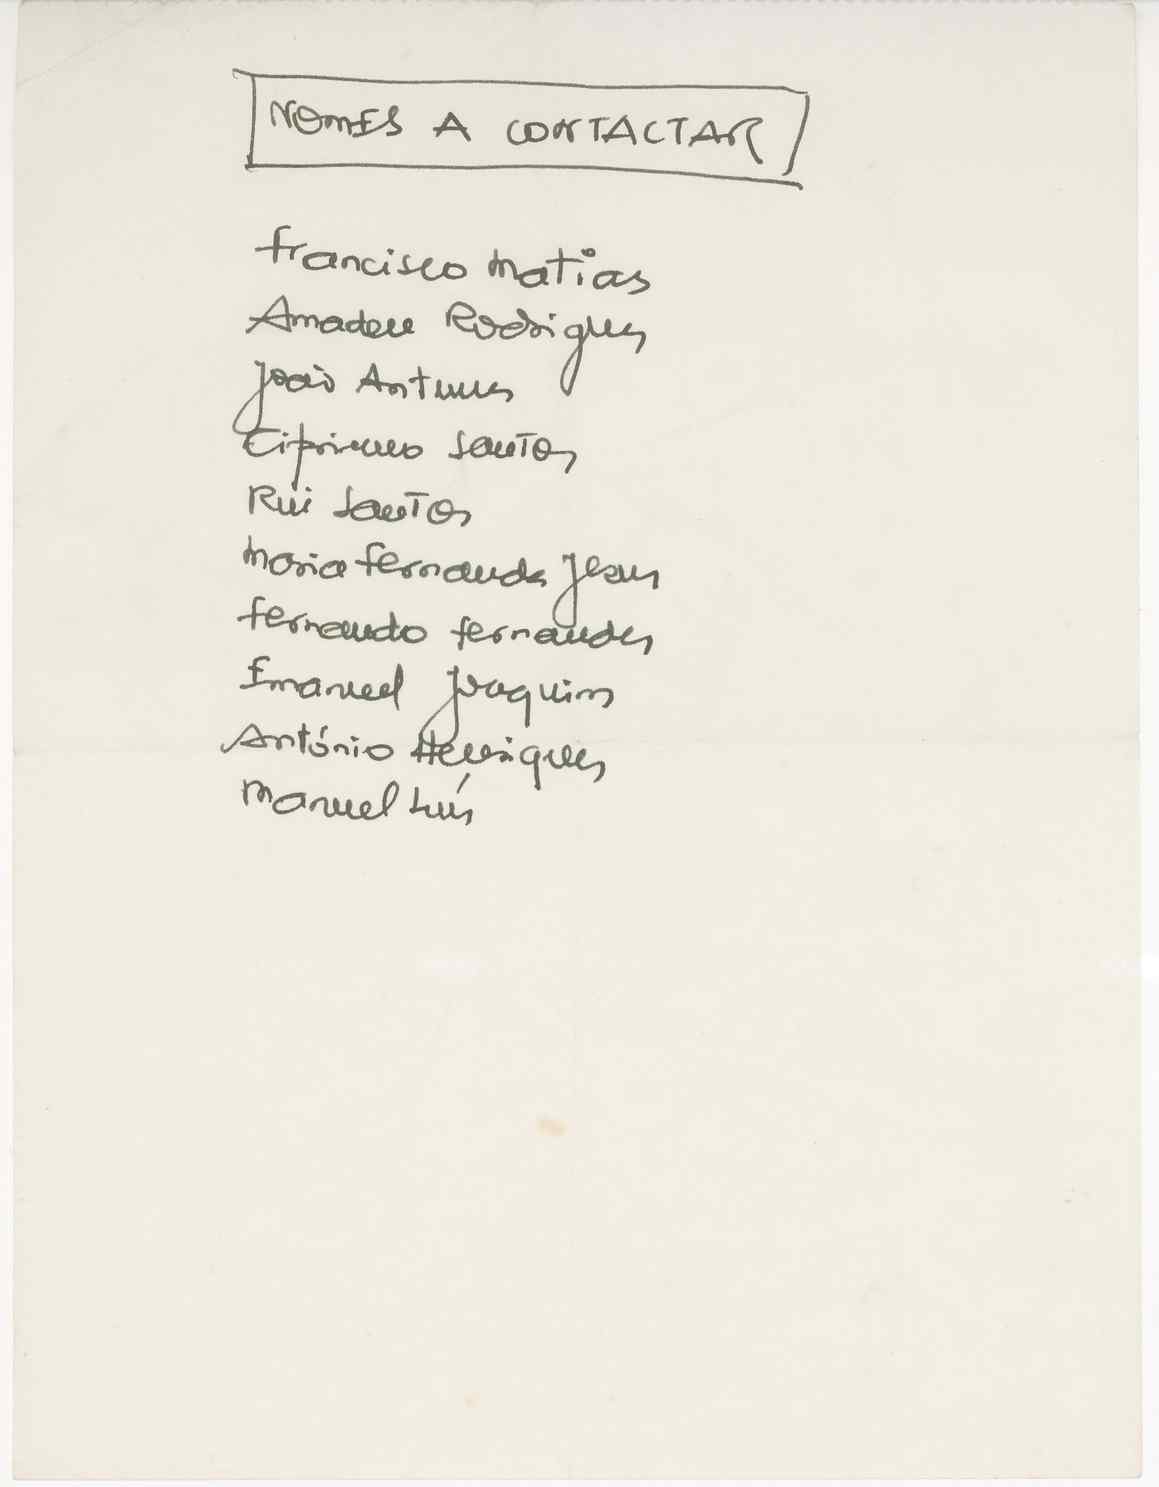 NOMES A CONTACTAR
Francisco Matias
Amadeu Rodrigues
João Antunes
Cipriano Santos
Rui Santos
Maria Fernanda Jesus
Fernando Fernandes
Emanuel Joaquim
António Henriques
Manuel Luís